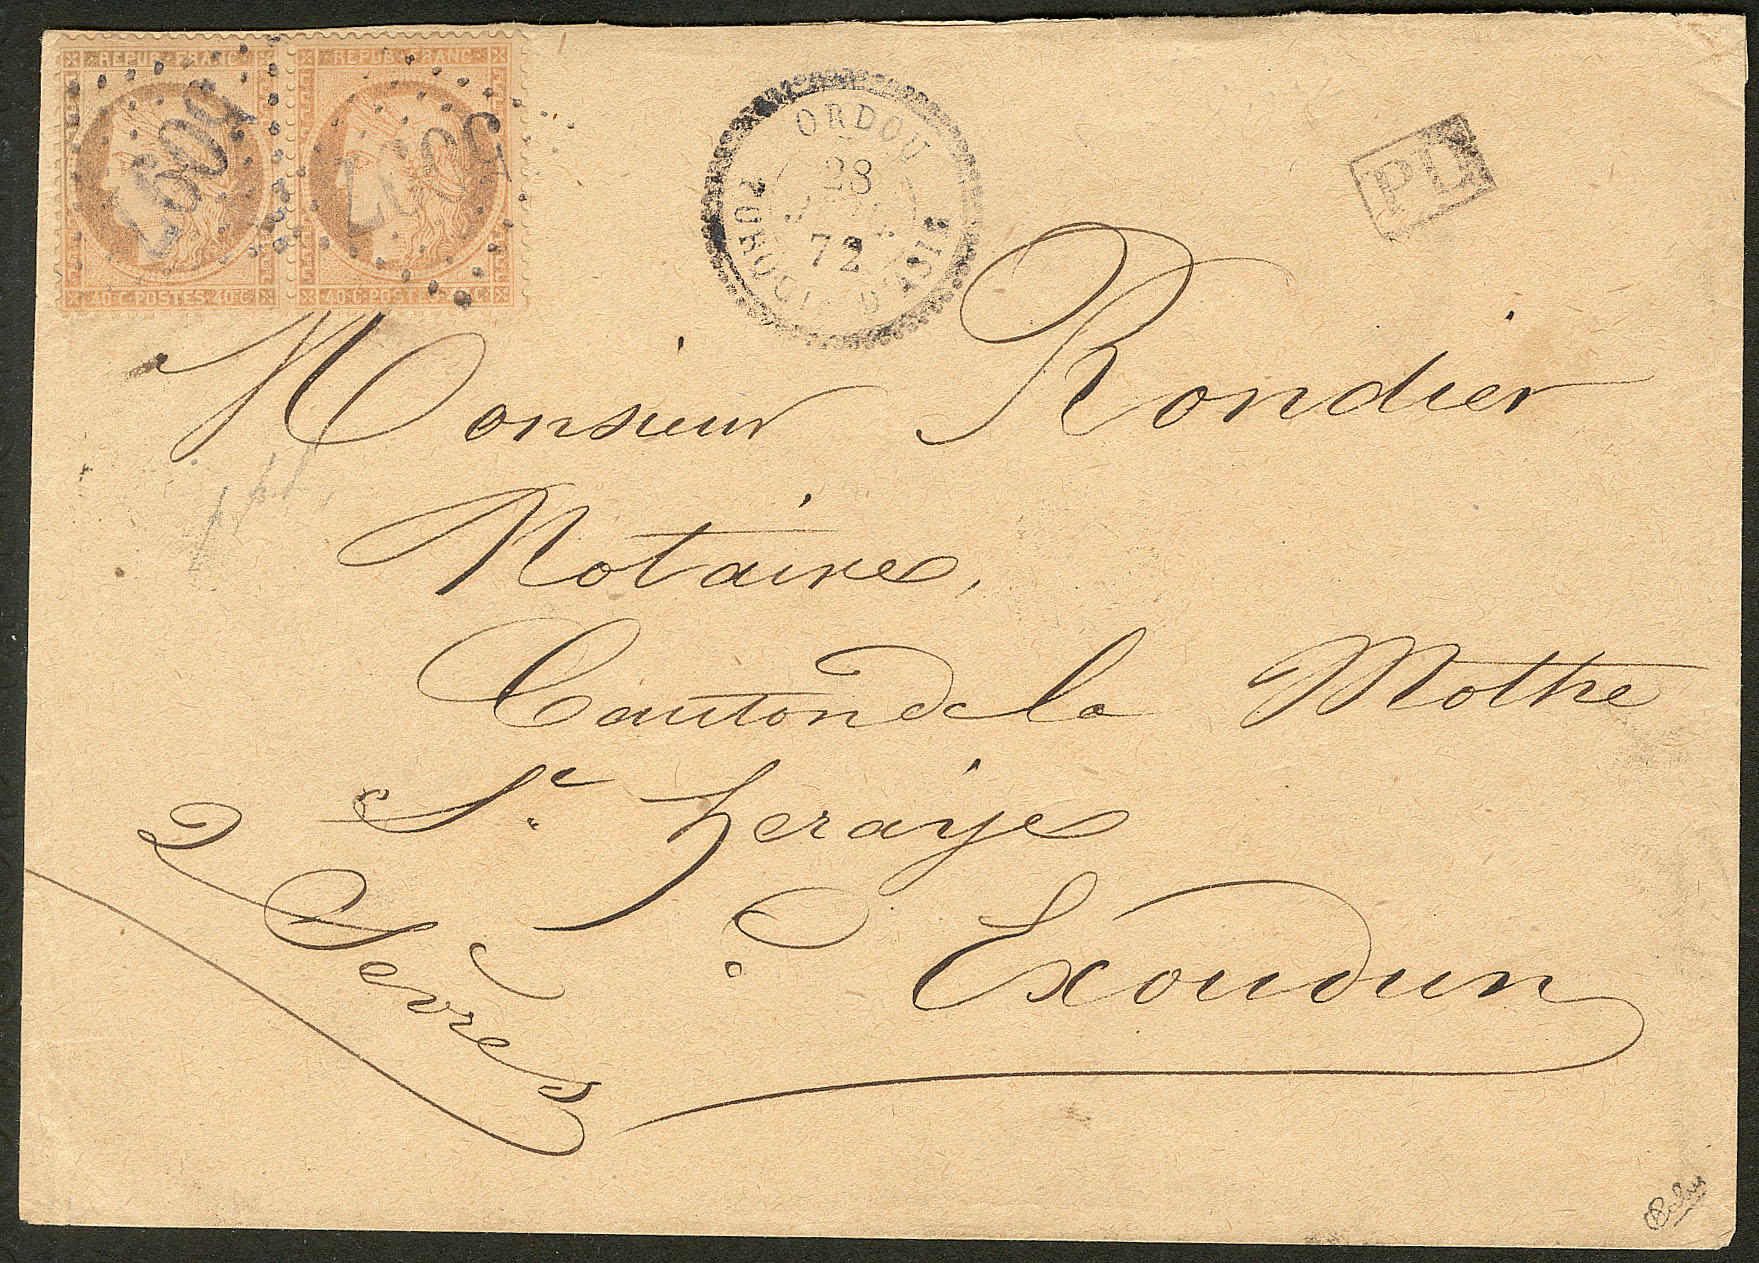 REPUB FRANC
REPUB FRANC
5097
5097
40 C POSTES 40 C
40 C POSTES 40 C
ORDOU
28
JUIL
72
TURQUIE D'ASIE
PD
Monsieur Rondier
Notaire,
Canton de la Mothe
St. heraye
à Exoudun
2 Sèvres